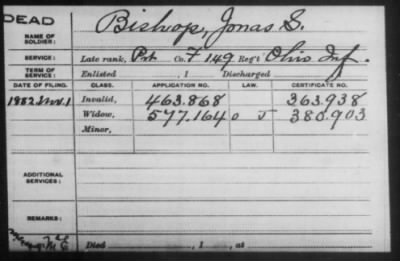 DEAD
NAME OF SOLDIER: Bishop, Jonas S.
SERVICE: Late rank, Pvt Co. F 149 Reg't Ohio Inf.
TERM OF SERVICE: Enlisted , 1 Discharged
DATE OF FILING. CLASS. APPLICATION NO. LAW. CERTIFICATE NO.
1882 Nov. 1 Invalid, 463.868 363.938
Widow, 577.164 0 J 380.903
Minor,
ADDITIONAL SERVICES:
REMARKS:
Died , 1 , at